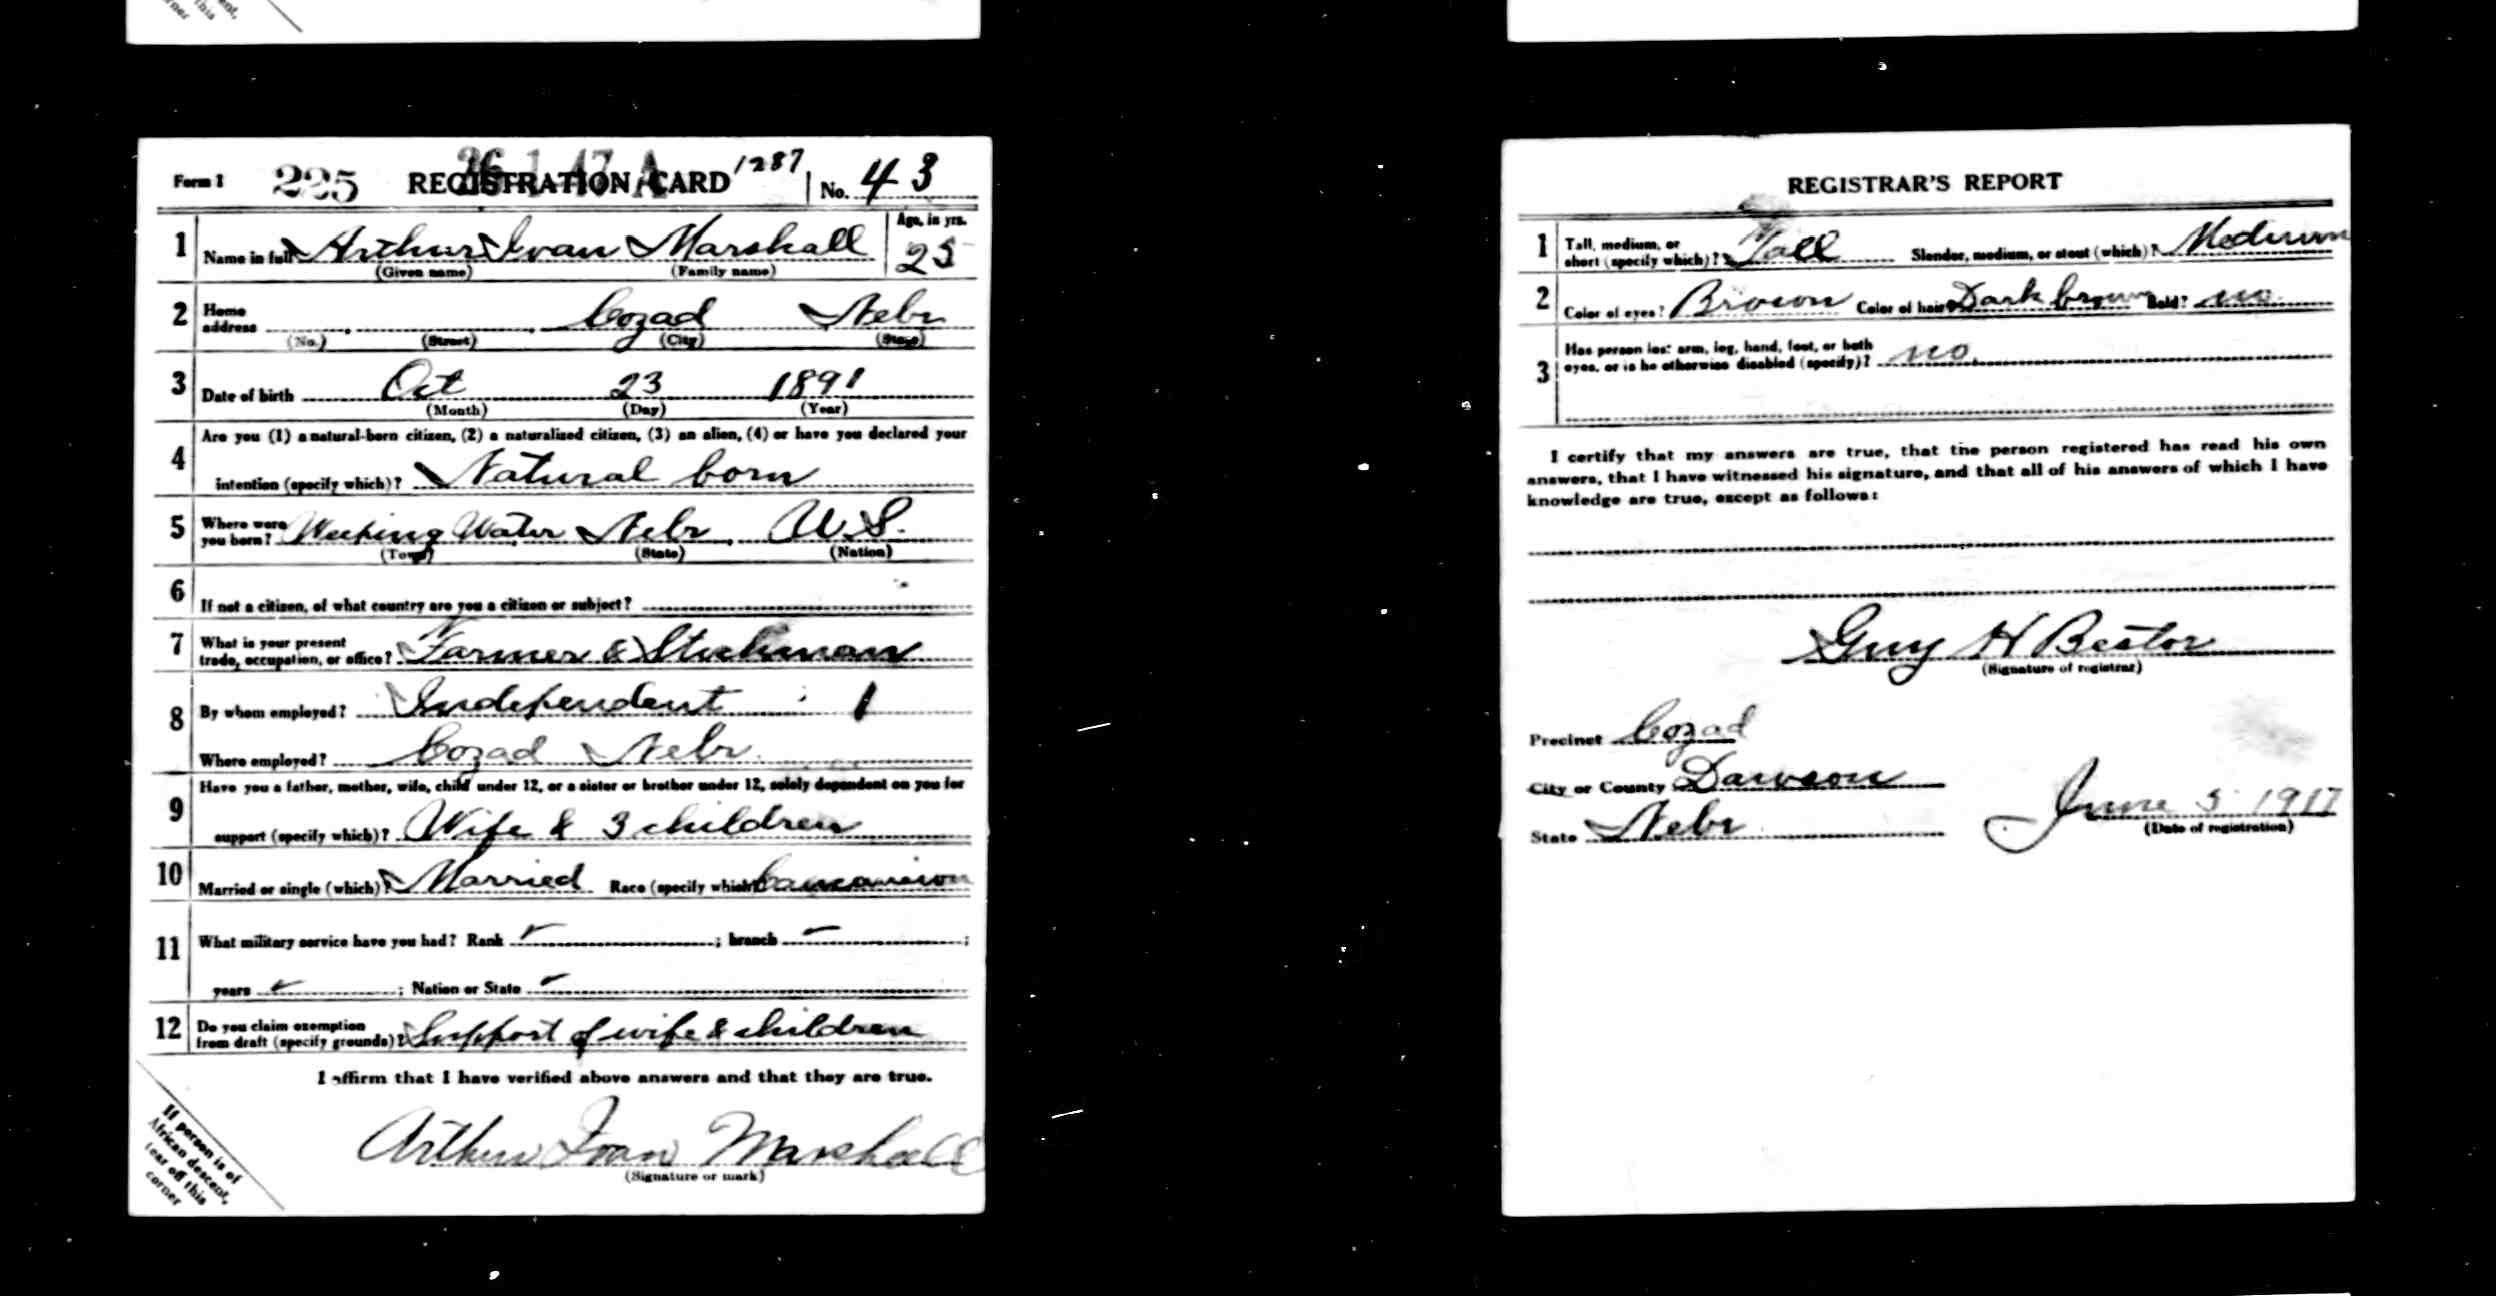 rner
this
ent,
Form 1 225 REGISTRATION CARD 1287 No. 43
26-1-47 A
1 Name in full Arthur Ivan Marshall Age, in yrs. 25
(Given name) (Family name)
2 Home address Cozad Nebr
(No.) (Street) (City) (State)
3 Date of birth Oct 23 1891
(Month) (Day) (Year)
4 Are you (1) a natural-born citizen, (2) a naturalized citizen, (3) an alien, (4) or have you declared your
intention (specify which)? Natural born
5 Where were you born? Weeping Water Nebr U.S.
(Town) (State) (Nation)
6 If not a citizen, of what country are you a citizen or subject?
7 What is your present
trade, occupation, or office? Farmer & Stockman
8 By whom employed? Independent 1
Where employed? Cozad Nebr.
9 Have you a father, mother, wife, child under 12, or a sister or brother under 12, solely dependent on you for
support (specify which)? Wife & 3 children
10 Married or single (which)? Married Race (specify which)? Caucasion
11 What military service have you had? Rank ; branch ;
years ; Nation or State
12 Do you claim exemption
from draft (specify grounds)? Support of wife & children
I affirm that I have verified above answers and that they are true.
Arthur Ivan Marshall
(Signature or mark)
If person is of
African descent,
tear off this
corner
REGISTRAR'S REPORT
1 Tall, medium, or
short (specify which)? Tall Slender, medium, or stout (which)? Medium
2 Color of eyes? Brown Color of hair? Dark brown Bald? no
3 Has person lost arm, leg, hand, foot, or both
eyes, or is he otherwise disabled (specify)? no
I certify that my answers are true, that the person registered has read his own
answers, that I have witnessed his signature, and that all of his answers of which I have
knowledge are true, except as follows:
Guy H Bestor
(Signature of registrar)
Precinct Cozad
City or County Dawson
State Nebr
June 5 1917
(Date of registration)